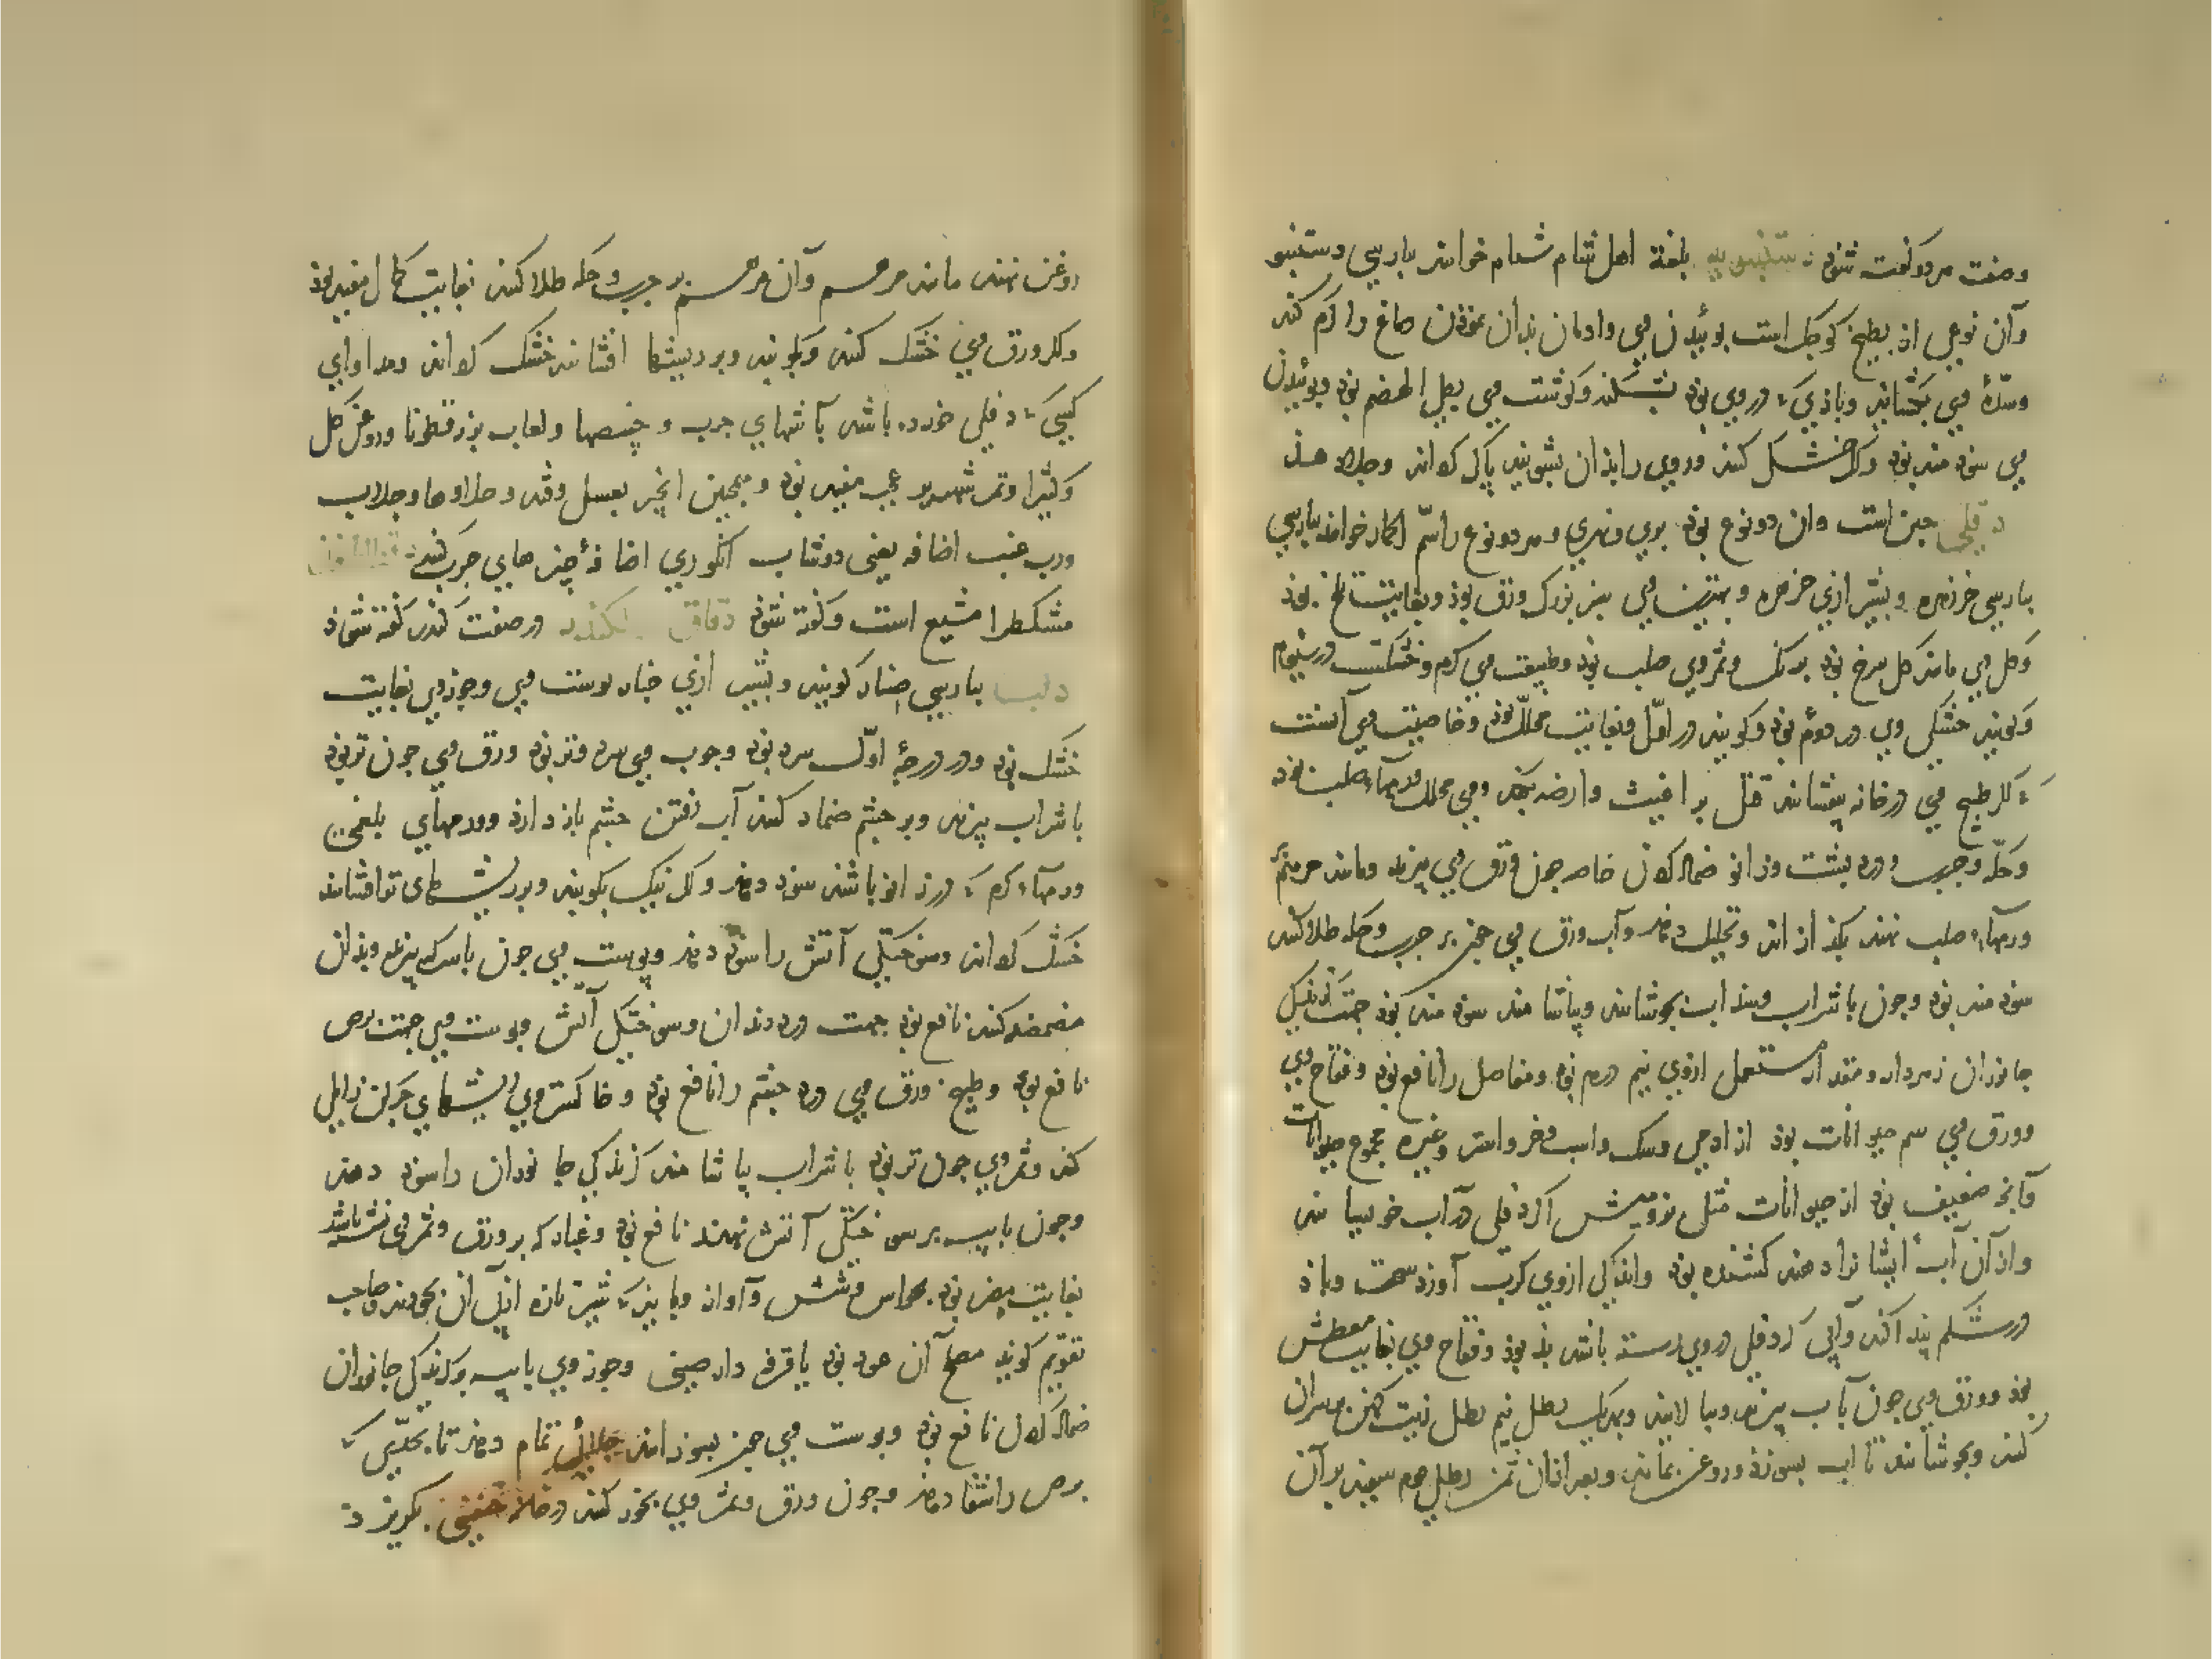 وصفت مردو گفته شود دستنبویه بلغة اهل شام شمام خوانند بپارسی دستنبو
وآن نوعی از بطیخ کوچک است بوئیدن وی وادمان بدان نمودن دماغ را گرم کند
وسدّۀ وی بگشاید وبادی که در وی بود بشکند وگوشت وی بطی الهضم بود وبوئیدن
وی سود مند بود وگر خشک کنند وروی را بذان بشویند پاک گرداند وجلا دهد
دفلی حبن است وان دو نوع بود بری ونهری ومر دو نوع را سمّ الحمار خوانند بپارسی
بپارسی خرزهره وبشیرازی خرهره وبهترین وی سبز بزرک ورق بوذ وبغایت تلخ بوذ
وگل وی مانند گل سرخ بود برنگ وثمر وی صلب بود وطبیعت وی گرم وخشکست در سیوم
وگویند خشکی وی در دوم بود وگویند در اول وبغایت محلّل بود وخاصیت وی آنست
که گر طبیخ وی در خانه بیفشانند قتل براغیث وارضه بکند ووی محلل ورمهاء صلب بود
وحکه وجرب ودرد پشت وزانو ضماد کردن خاصه چون ورق وی بپزند ومانند مرهم بر
ورمهاء صلب نهند بگذازاند وتحلیل دهد وآب ورق وی چون بر جرب وحکه طلا کنند
سود مند بود وچون با شراب وسداب بجوشانند وبیاشامند سود مند بوذ جهت گزندگی
جانوران زهردار ومقدار مستعمل ازوی نیم درم بود ومفاصل را نافع بود وفقاح وی
وورق وی سم حیوانات بوذ از ادمی وسک واسب وخر واستر وغیره مجموع حیوانات
وآنچه ضعیف بود از حیوانات مثل بز ومیش اگر دفلی در آب خویسانند
واز آن آب ایشانرا دهند کشنده بود واندکی ازوی کرب آورد سخت وباذ
در شکم پیدا کند وآبی که دفلی در وی رسته باشد بد بوذ وفقاح وی بغایت معطش
بوذ وورق وی چون بآب بپزند وبپالایند وبهر یک رطل نیم رطل زیت کهن بر آن
کنند وبجوشانند تا آب بسوزد وروغن بماند وبعد از آن ثمن رطل موم سپید بر آن
روغن نهند مانند مرهم وآن مرهم بر جرب وحکه طلا کنند بغایت کمال مفید بوذ
وگر ورق وی خشک کنند وبکوبند وبر ریشها افشانند خشک گرداند ومداوای
کسی که دفلی خورده باشد بآشهای چرب وخبیصها ولعاب بزر قطونا وروغن گل
وکثیرا وتمر شهریز عجب مفید بود وهمچنین انجیر بعسل وقند وحلاوها وجلاب
ورب عنب اضافه یعنی دوشاب انگوری اضافۀ چیزهای چرب کنند
مشکطرا مشیع است وگفته شود دقاق الکندر در صفت کندر گفته شوذ
دلب بپارسی چنار گویند وبشیرازی خنار پوست وی وجوز وی بغایت
خشک بود ودر درجۀ اوّل سرد بود وچوب وی سرد وتر بود ورق وی چون تر بود
با شراب بپزند وبر چشم ضماد کنند آب رفتن چشم باز دارد وورمهای بلغمی
ورمهاء گرم که در زانو باشند سود دهد وگر نیک بکوبند وبر ریشهای تر افشانند
خشک گرداند وسوختگی آتش را سود دهد وپوست وی چون با سرکه بپزند وبذان
مضمضه کنند نافع بود جهت درد دندان وسوختگی آتش وپوست وی جهت برص
نافع بود وطبیخ ورق وی درد چشم را نافع بود وخاکستر وی ریشهای چرکن زایل
کند وثمر وی چون تر بود با شراب بیاشامند گزندگی جانوران را سود دهد
وچون با پیه بر سوختگی آتش نهند نافع بود وغبار که بر ورق وثمر وی نشسته باشد
بغایت مضر بود بحواس وشش وآواز وبا بیز که شیر تازه از پی آن بخورند وصاحب
تقویم گوید مصلح آن عود بود یا قرفه دارصینی وجوز وی با پیه بر گزندگی جانوران
ضماد کردن نافع بود وپوست وی چون بسوزانند جلایی تمام دهد تا بحدّی که
برص را شفا دهد وچون ورق وثمر وی بخور کنند در خانه خنفس بگریزد